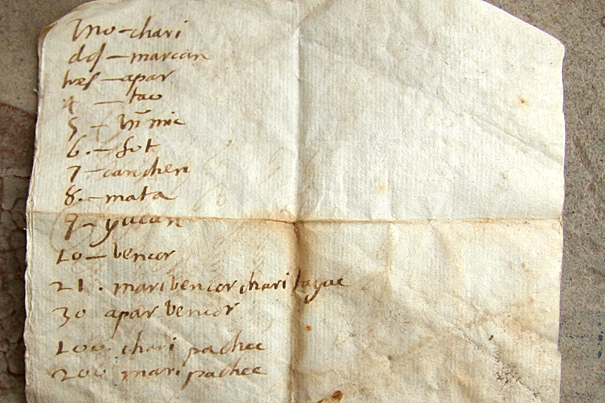 Uno - chari
dos - marcan
tres - apar
4 - tao
5 - himic
6. - sut
7 - canchen
8. - mata
9 - yucan
10 - bencor
21. maribencor chari tayac
30 apar bencor
100. chari pachac
200 mari pachac